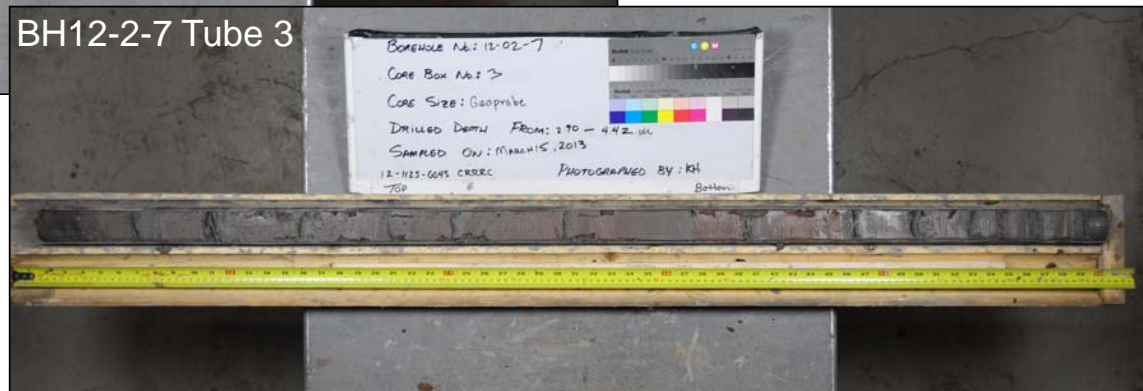 BH12-2-7 Tube 3
BOREHOLE No.: 12-02-7
CORE BOX No.: 3
CORE SIZE: Geoprobe
DRILLED DEPTH FROM: 2.90 - 4.42 m
SAMPLED ON: MARCH 15, 2013
PHOTOGRAPHED BY: KH
TOP
Bottom
Kodak
C M